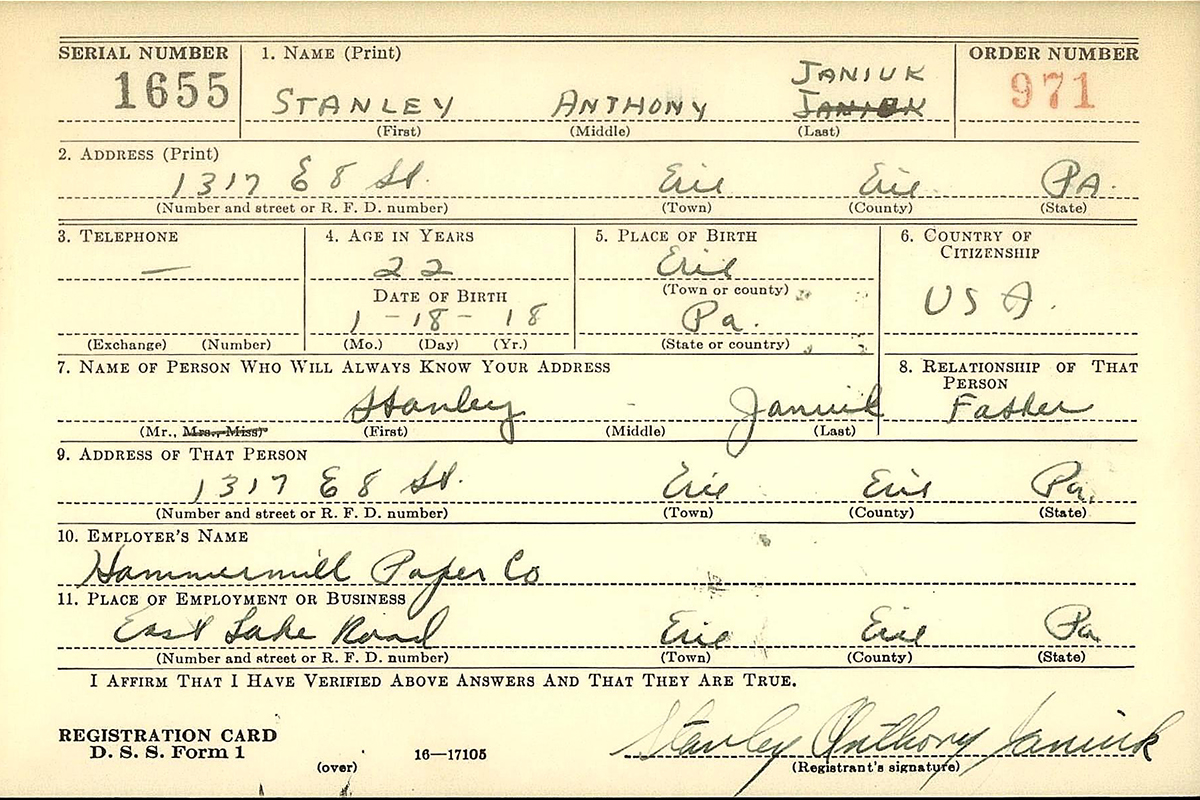 SERIAL NUMBER 1. NAME (Print) ORDER NUMBER
JANIUK
1655 STANLEY ANTHONY JANIUK 971
(First) (Middle) (Last)
2. ADDRESS (Print)
1317 E 8 St. Erie Erie PA.
(Number and street or R. F. D. number) (Town) (County) (State)
3. TELEPHONE 4. AGE IN YEARS 5. PLACE OF BIRTH 6. COUNTRY OF CITIZENSHIP
— 22 Erie
(Town or county)
DATE OF BIRTH USA.
1-18-18 Pa.
(Exchange) (Number) (Mo.) (Day) (Yr.) (State or country)
7. NAME OF PERSON WHO WILL ALWAYS KNOW YOUR ADDRESS 8. RELATIONSHIP OF THAT PERSON
Stanley - Janiuk Father
(Mr., Mrs., Miss) (First) (Middle) (Last)
9. ADDRESS OF THAT PERSON
1317 E 8 St. Erie Erie Pa.
(Number and street or R. F. D. number) (Town) (County) (State)
10. EMPLOYER'S NAME
Hammermill Paper Co
11. PLACE OF EMPLOYMENT OR BUSINESS
East Lake Road Erie Erie Pa
(Number and street or R. F. D. number) (Town) (County) (State)
I AFFIRM THAT I HAVE VERIFIED ABOVE ANSWERS AND THAT THEY ARE TRUE.
REGISTRATION CARD
D. S. S. Form 1 16—17105 Stanley Anthony Janiuk
(over) (Registrant's signature)